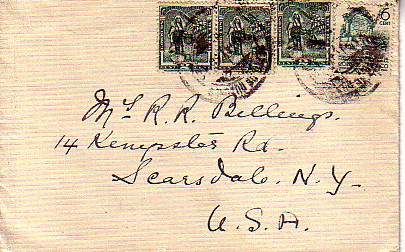 6
CENT
Mrs R. R. Billings.
14 Kempster Rd.
Scarsdale. N. Y.
U. S. A.